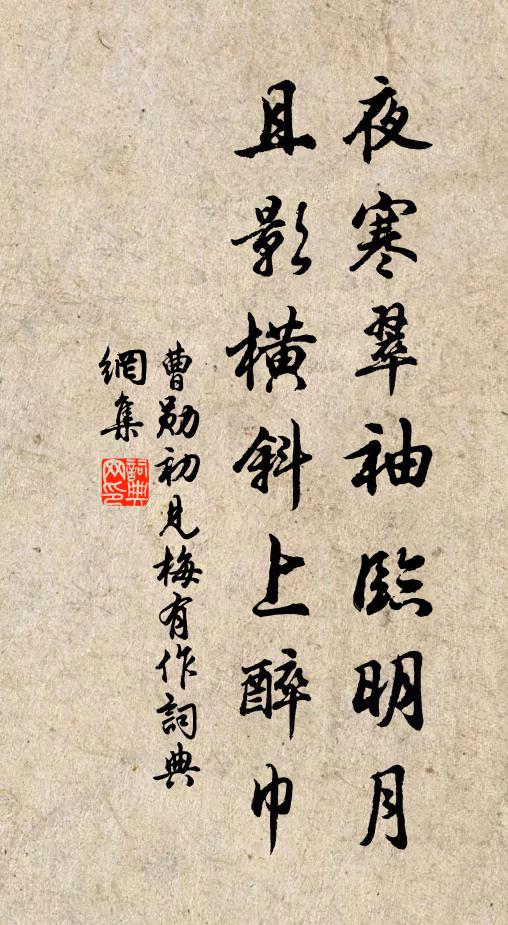 夜寒翠袖臨明月
且影橫斜上醉巾
曹勛初見梅有作詞典
網集
詞典
网印